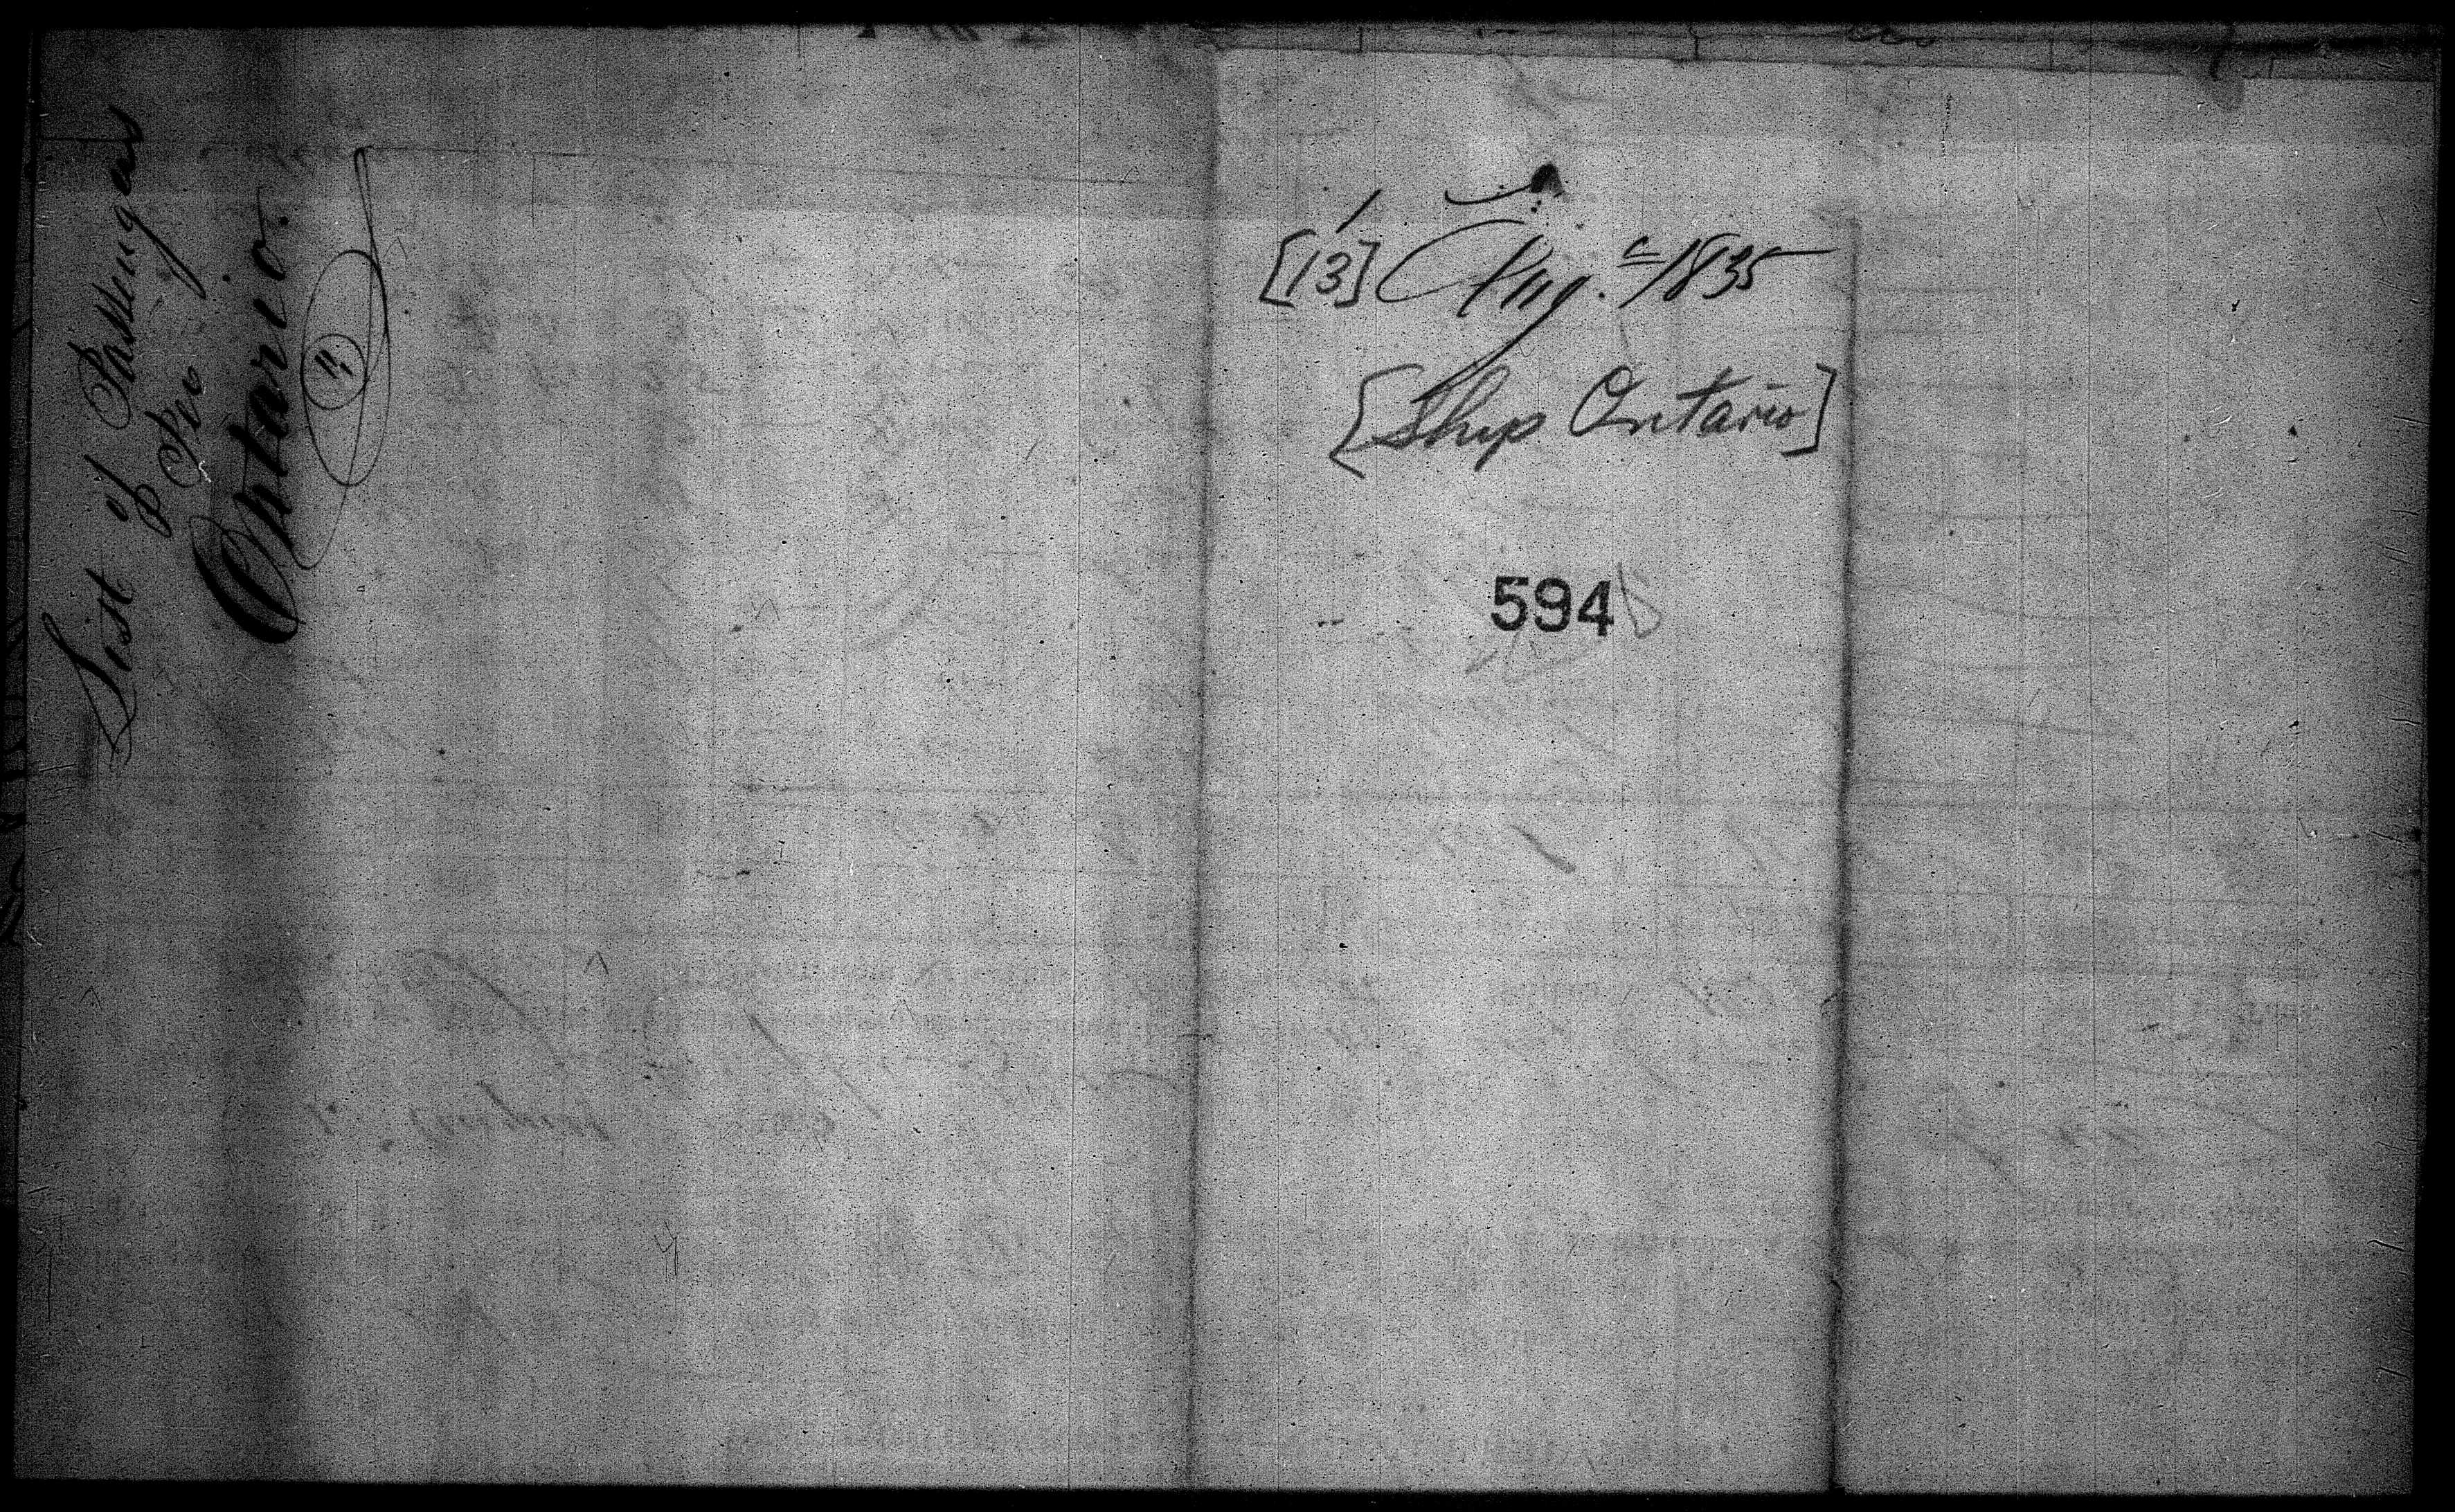 List of Passengers
P Ship
Ontario.
[13] Aug. 1835
[Ship Ontario]
594